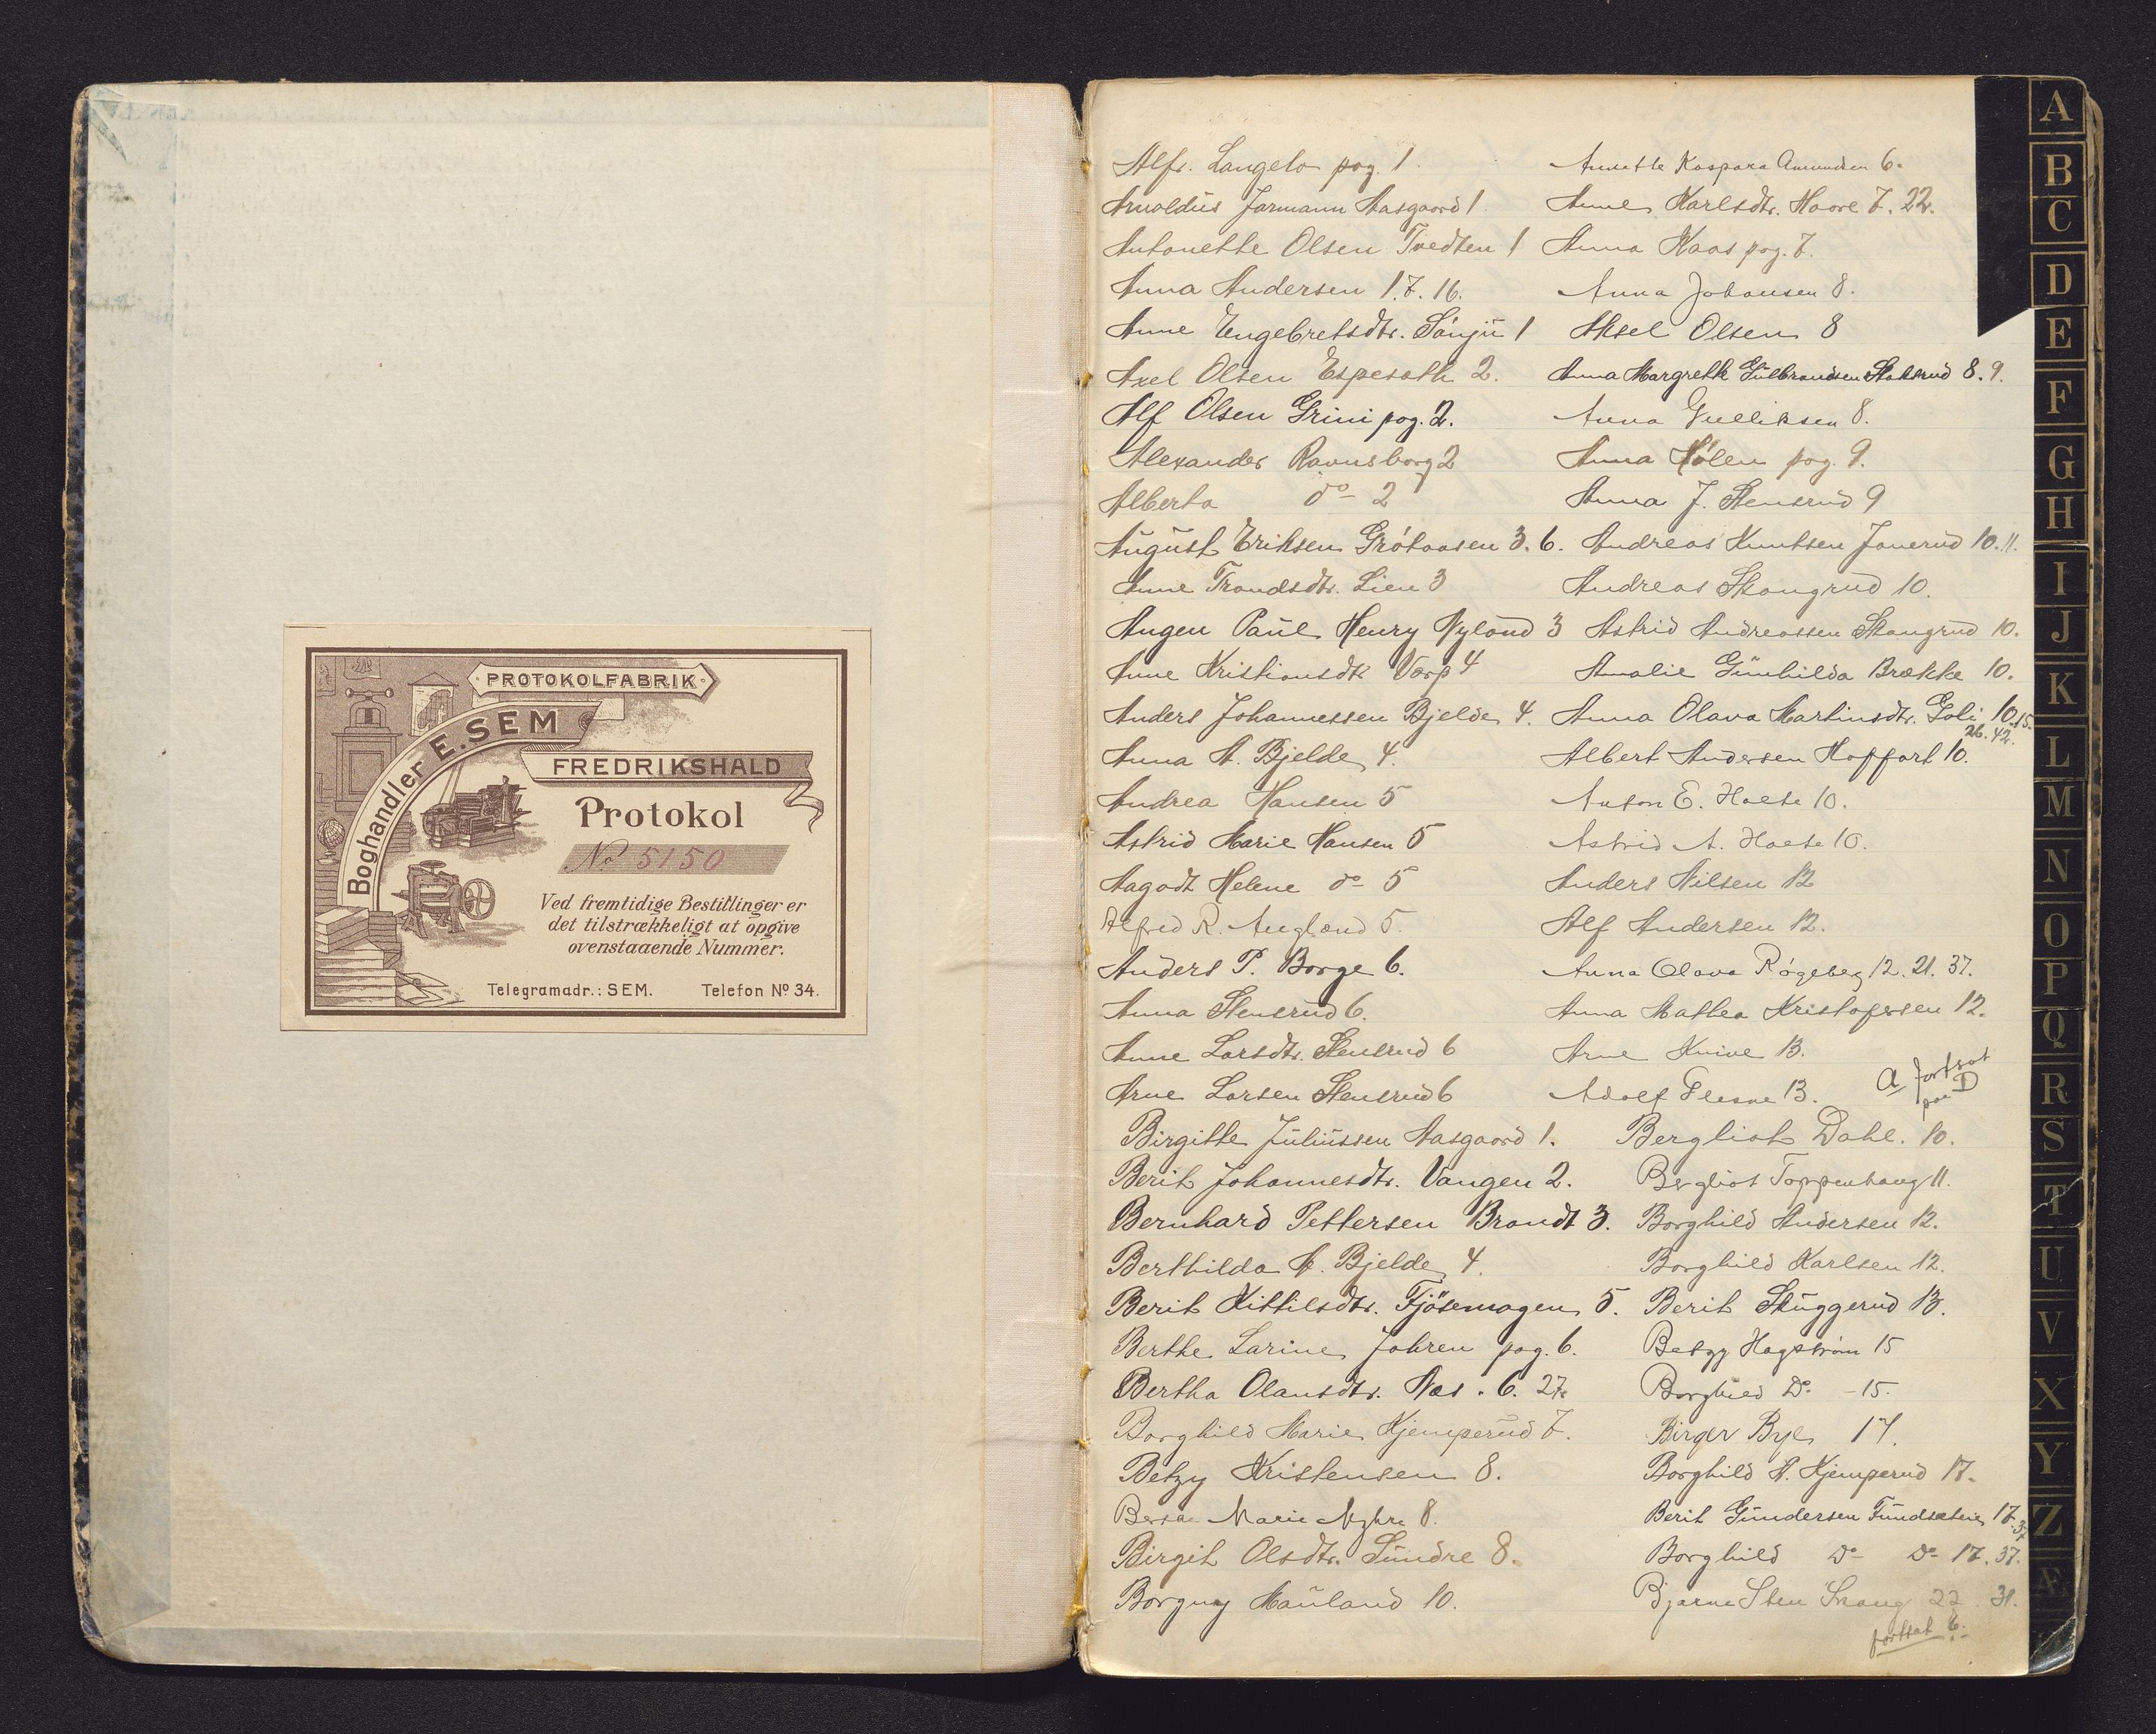 PROTOKOLFABRIK
Boghandler E. SEM
FREDRIKSHALD
Protokol
No 5150
Ved fremtidige Bestillinger er
det tilstrækkeligt at opgive
ovenstaaende Nummer.
Telegramadr.: SEM. Telefon No 34.
Alfr. Langelo pag. 1.
Arnoldus Jarmann Aasgaard 1
Antonette Olsen Tvedten 1
Anna Andersen 1. 7. 16.
Anne Engebretsdtr. Sønju 1
Axel Olsen Espeseth 2.
Alf Olsen Grini pag. 2.
Alexander Ravnsborg 2
Alberta do 2
August Eriksen Gråtaasen 3. 6.
Anne Trondsdtr. Lien 3
Augen Paul Henry Nyland 3
Anne Kristiansdtr Varp 4
Anders Johannessen Bjelde 4.
Anna A. Bjelde 4.
Andrea Hansen 5
Astrid Marie Hansen 5
Aagodt Helene do 5
Alfred R. Augland 5.
Anders P. Borge 6.
Anna Stensrud 6.
Anne Larsdtr. Stensrud 6
Arne Larsen Stensrud 6
Annette Kaspara Amundsen 6.
Anne Karlsdtr. Haave 7. 22.
Anna Kaas pag. 7.
Anna Johansen 8.
Aksel Olsen 8
Anna Margrethe Gulbrandsen Stakrud 8. 9.
Anna Gulliksen 8.
Anna Hølen pag. 9.
Anna J. Stensrud 9
Andreas Knutsen Janerud 10. 11.
Andreas Skangrud 10.
Astrid Andreassen Skangrud 10.
Amalie Gunhilda Brække 10.
Anna Olava Martinsdtr. Goli 10. 15.
26. 42.
Albert Andersen Hoffart 10.
Anton E. Holte 10.
Astrid A. Holte 10.
Anders Nilsen 12
Alf Andersen 12.
Anna Olava Røgeberg 12. 21. 37.
Anna Mathea Kristofersen 12.
Arne Knive 13.
Adolf Flesne 13.
A fortsat
paa D
Birgitte Juliussen Aasgaard 1.
Berit Johannesdtr. Vangen 2.
Bernhard Pettersen Brandt 3.
Berthilda A. Bjelde 4.
Berit Kittilsdtr. Fjøsemagen 5.
Berthe Larine Jahren pag. 6.
Bertha Olausdtr. Næs. 6. 27.
Borghild Marie Kjemperud 7.
Betzy Kristensen 8.
Marie Myhre 8.
Birgit Olsdtr. Sundre 8.
Borgny Hauland 10.
Bergliot Dahl. 10.
Bergliot Toppenhaug 11.
Borghild Andersen 12.
Borghild Karlsen 12.
Berit Skuggerud 13.
Betzy Hagstrøm 15
Borghild Do - 15.
Birger Bye 17.
Borghild A. Kjemperud 17.
Berit Gundersen Tundsæteie 17. 37
Borghild Do Do 17. 37.
Bjarne Sten Skaug 22. 31.
fortsat E.
A
B
C
D
E
F
G
H
I
J
K
L
M
N
O
P
Q
R
S
T
U
V
X
Y
Z
Æ